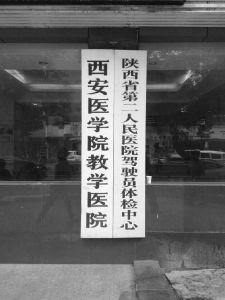 陕西省第二人民医院驾驶员体检中心
西安医学院教学医院